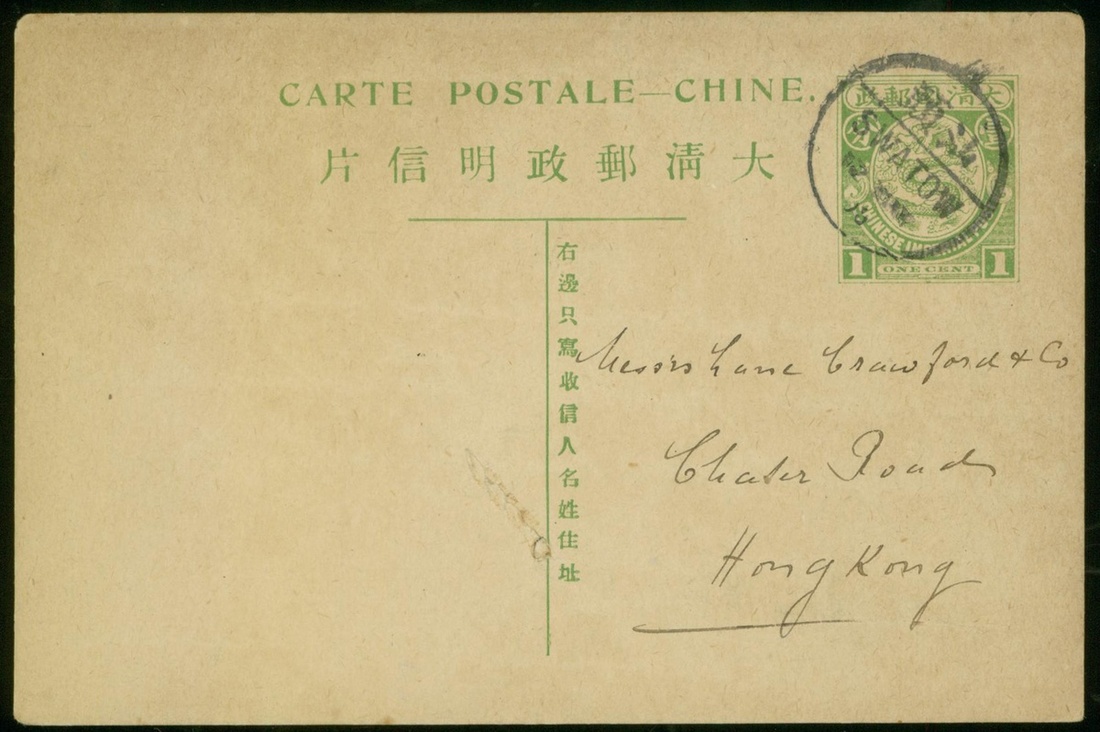 CARTE POSTALE—CHINE.
片信明政郵清大
政郵國清大
SWATOW
CHINESE
1 ONE CENT 1
右邊只寫收信人名姓住址
Messrs Lane Crawford & Co
Chater Road
Hong Kong